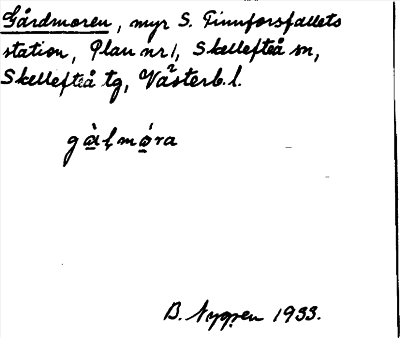 Gårdmoren, myr S. Finnforsfallets
station, Plan nr 1, Skellefteå sn,
Skellefteå tg, Västerb. l.
gὰ̱lmó̱ra
B. Nygren 1933.